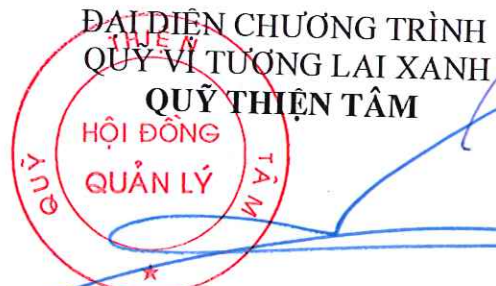 ĐẠI DIỆN CHƯƠNG TRÌNH
QUỸ VÌ TƯƠNG LAI XANH
QUỸ THIỆN TÂM
QUỸ THIỆN TÂM
HỘI ĐỒNG
QUẢN LÝ